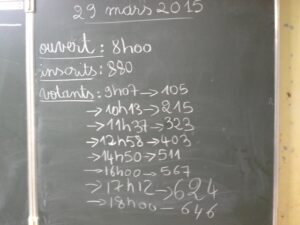 29 mars 2015
ouvert : 8h00
inscrits : 880
votants : 9h07 → 105
→ 10h13 → 215
→ 11h37 → 323
→ 12h58 → 403
→ 14h50 → 511
→ 16h00 → 567
→ 17h12 → 624
→ 18h00 — 646